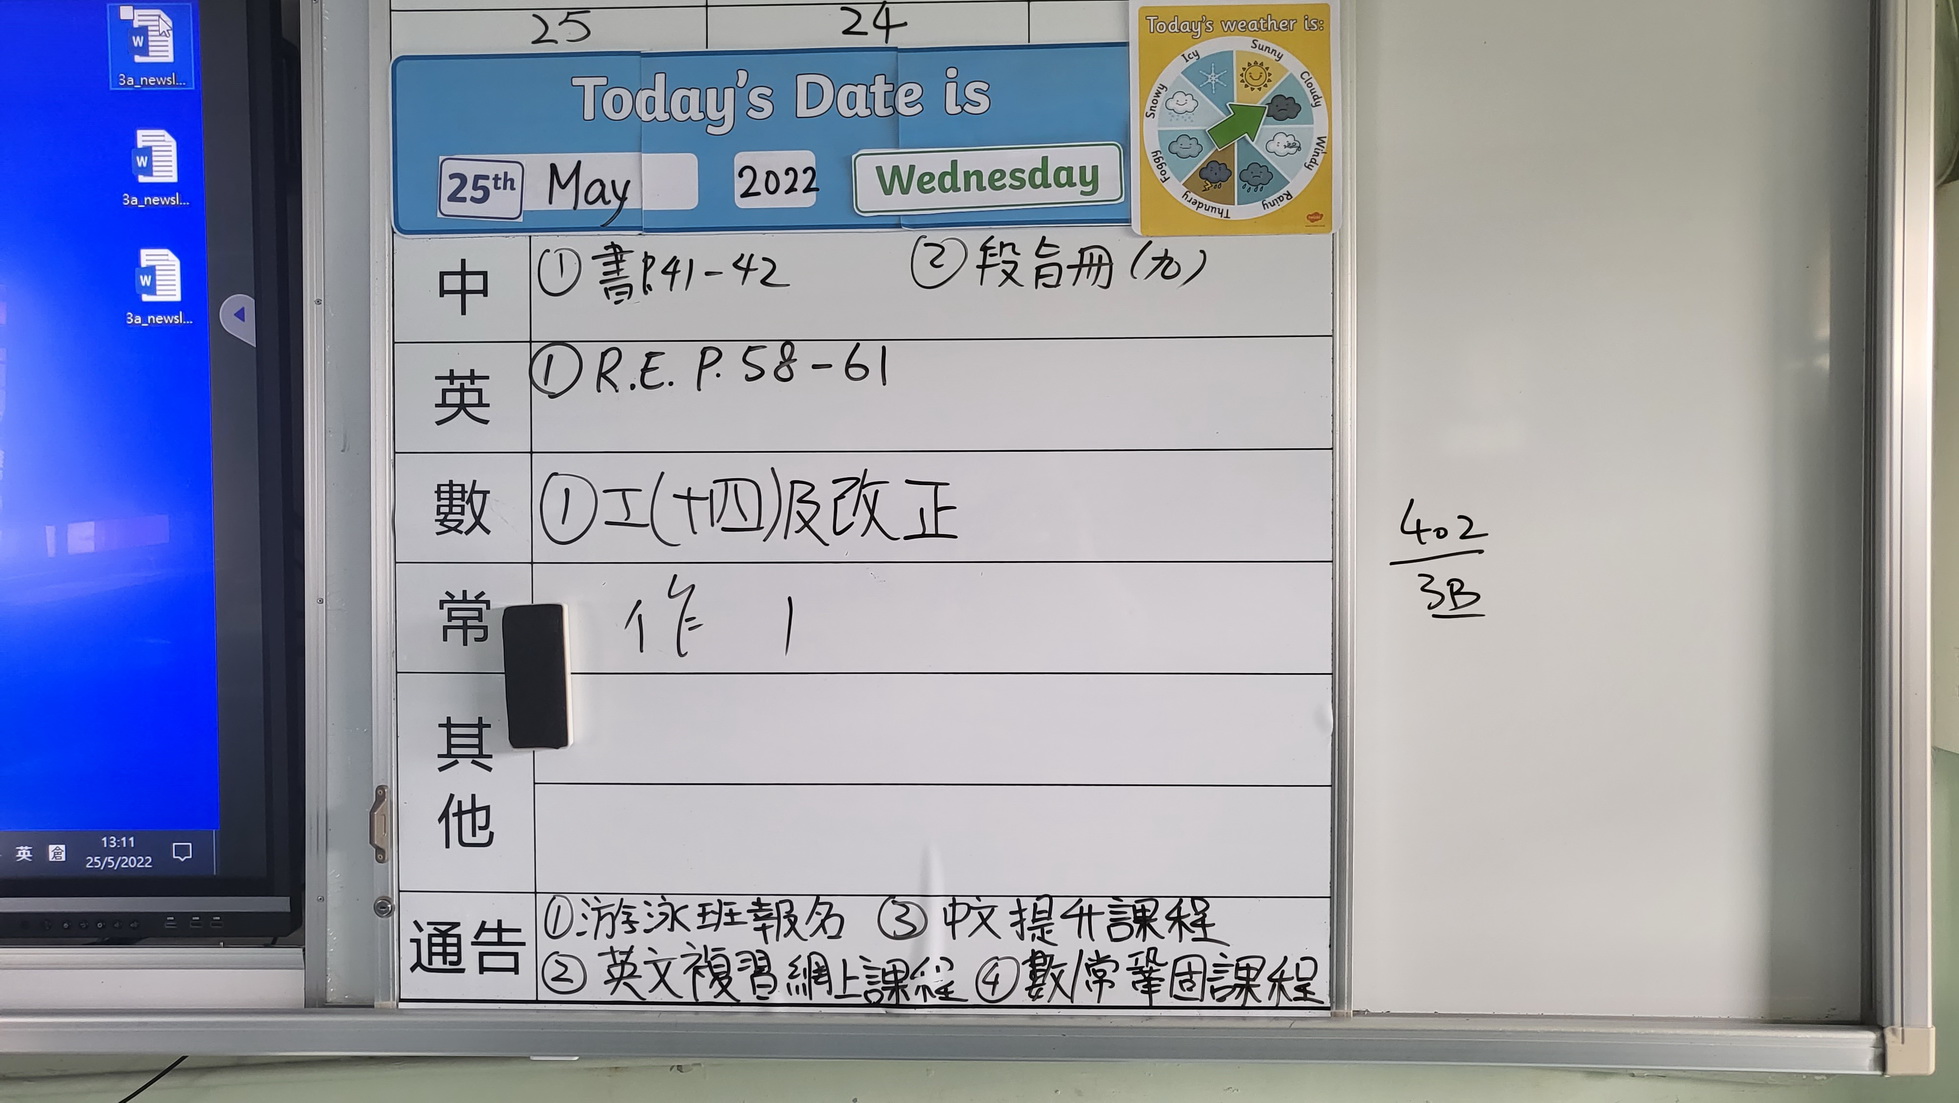 3a_newsl...
3a_newsl...
3a_newsl...
英 倉 13:11
25/5/2022
25 24
Today's Date is
25th May 2022 Wednesday
Today's weather is:
Sunny
Cloudy
Windy
Rainy
Thundery
Foggy
Snowy
Icy
中 ①書P.41-42 ②段旨冊(九)
英 ①R.E. P. 58-61
數 ①工(十四)及改正
常 作 1
其他
通告 ①游泳班報名 ③中文提升課程
②英文複習網上課程 ④數/常鞏固課程
402
3B